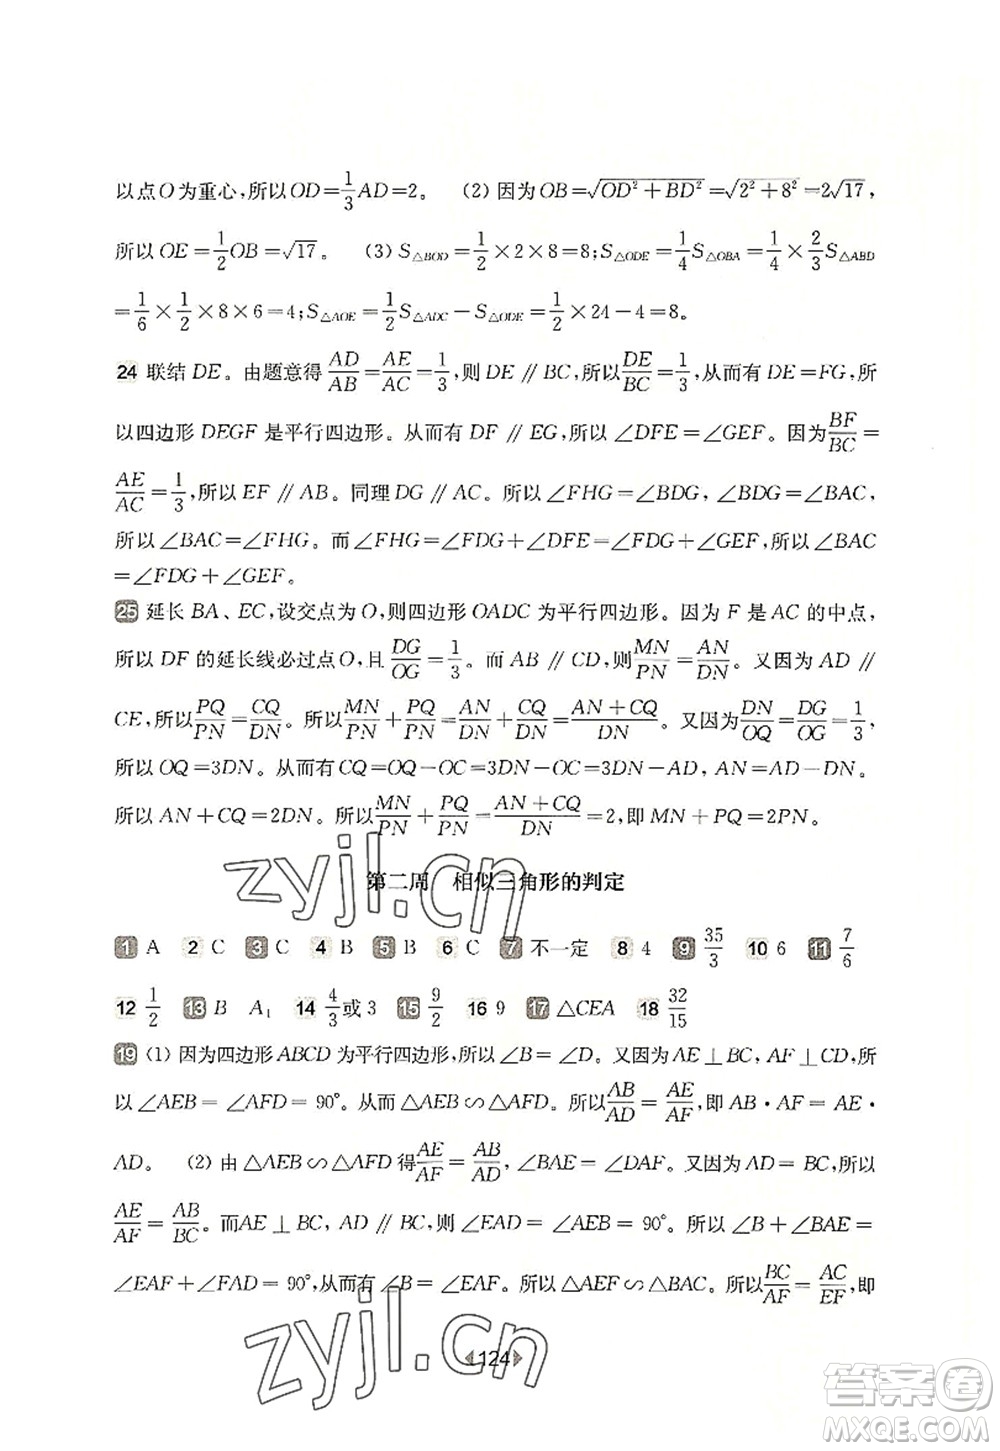 以点O为重心,所以OD=1/3AD=2。 (2) 因为OB=√(OD²+BD²)=√(2²+8²)=2√17,
所以OE=1/2OB=√17。 (3) S△BOD=1/2×2×8=8;S△ODE=1/4S△OBA=1/4×2/3S△ABD
=1/6×1/2×8×6=4;S△AOE=1/2S△ADC-S△ODE=1/2×24-4=8。
24 联结DE。由题意得AD/AB=AE/AC=1/3,则DE∥BC,所以DE/BC=1/3,从而有DE=FG,所
以四边形DEGF是平行四边形。从而有DF∥EG,所以∠DFE=∠GEF。因为BF/BC=
AE/AC=1/3,所以EF∥AB。同理DG∥AC。所以∠FHG=∠BDG,∠BDG=∠BAC,
所以∠BAC=∠FHG。而∠FHG=∠FDG+∠DFE=∠FDG+∠GEF,所以∠BAC
=∠FDG+∠GEF。
25 延长BA、EC,设交点为O,则四边形OADC为平行四边形。因为F是AC的中点,
所以DF的延长线必过点O,且DG/OG=1/3。而AB∥CD,则MN/PN=AN/DN。又因为AD∥
CE,所以PQ/PN=CQ/DN。所以MN/PN+PQ/PN=AN/DN+CQ/DN=(AN+CQ)/DN。又因为DN/OQ=DG/OG=1/3,
所以OQ=3DN。从而有CQ=OQ-OC=3DN-OC=3DN-AD,AN=AD-DN。
所以AN+CQ=2DN。所以MN/PN+PQ/PN=(AN+CQ)/DN=2,即MN+PQ=2PN。
第二周 相似三角形的判定
1 A 2 C 3 C 4 B 5 B 6 C 7 不一定 8 4 9 35/3 10 6 11 7/6
12 1/2 13 B A₁ 14 4/3或3 15 9/2 16 9 17 △CEA 18 32/15
19 (1) 因为四边形ABCD为平行四边形,所以∠B=∠D。又因为AE⊥BC,AF⊥CD,所
以∠AEB=∠AFD=90°。从而△AEB∽△AFD。所以AB/AD=AE/AF,即AB·AF=AE·
AD。 (2) 由△AEB∽△AFD得AE/AF=AB/AD,∠BAE=∠DAF。又因为AD=BC,所以
AE/AF=AB/BC。而AE⊥BC,AD∥BC,所以∠EAD=∠AEB=90°。所以∠B+∠BAE=
∠EAF+∠FAD=90°,从而有∠B=∠EAF。所以△AEF∽△BAC。所以BC/AF=AC/EF,即
124
zyjl.cn
zyjl.cn
答案圈
MXQE.COM